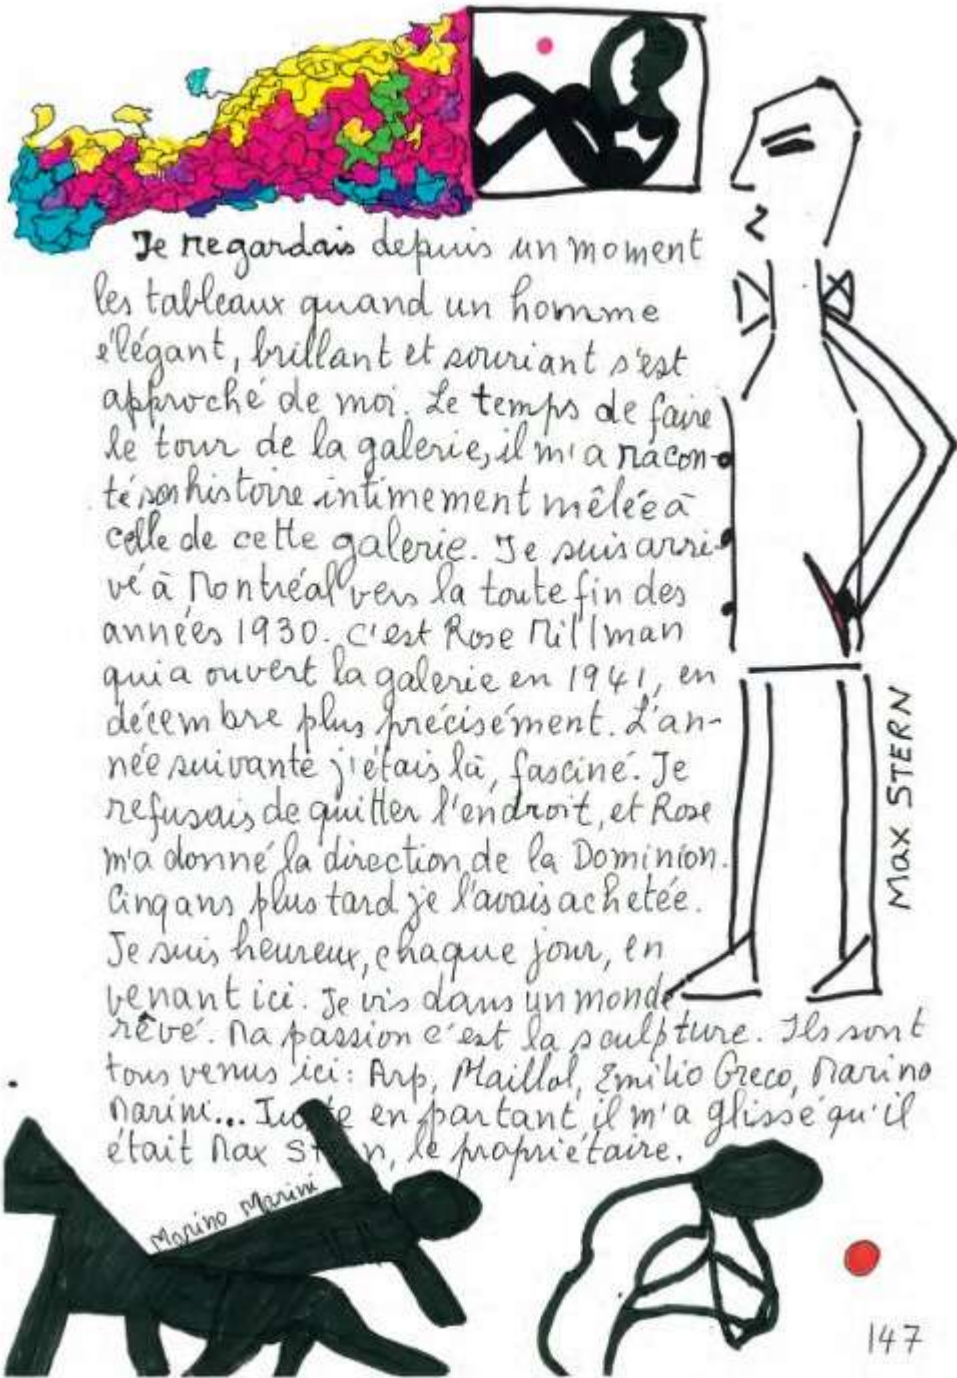 Je regardais depuis un moment
les tableaux quand un homme
élégant, brillant et souriant s'est
approché de moi. Le temps de faire
le tour de la galerie, il m'a racon-
té son histoire intimement mêlée à
celle de cette galerie. Je suis arri-
vé à Montréal vers la toute fin des
années 1930. C'est Rose Millman
qui a ouvert la galerie en 1941, en
décembre plus précisément. L'an-
née suivante j'étais là, fasciné. Je
refusais de quitter l'endroit, et Rose
m'a donné la direction de la Dominion.
Cinq ans plus tard je l'avais achetée.
Je suis heureux, chaque jour, en
venant ici. Je vis dans un monde
rêvé. Ma passion c'est la sculpture. Ils sont
tous venus ici : Arp, Maillol, Emilio Greco, Marino
Marini... Juste en partant il m'a glissé qu'il
était Max Stern, le propriétaire.
MAX STERN
Marino Marini
147